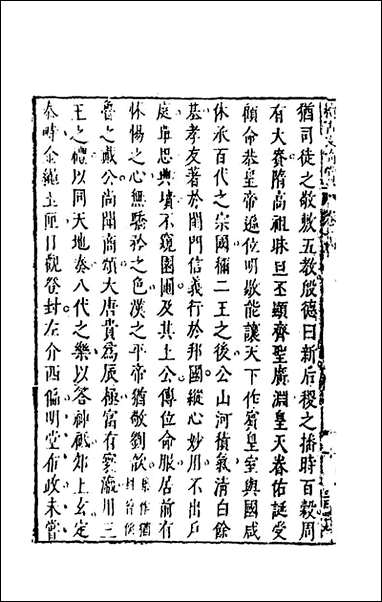 猶司徒之敬敷五教殷德日新后稷之播時百穀周
有大賚隋高祖昧旦丕顯齊聖廣淵皇天眷佑誕受
顧命恭皇帝遜位明敭能讓天下作賓皇室與國咸
休承百代之宗國稱二王之後公山河積氣清白餘
基孝友著於閨門信義行於邦國縱心妙用不出戶
庭單思典墳不窺園圃及其土公傳位命服居前有
怵惕之心無驕矜之色漢之平帝猶敬劉歆
魯之戴公尚聞商頌大唐貴爲辰極富有寰瀛用三
王之禮以同天地奏八代之樂以答神祇郊上玄定
泰時金繩玉匣日觀登封左介西偏明堂布政未嘗